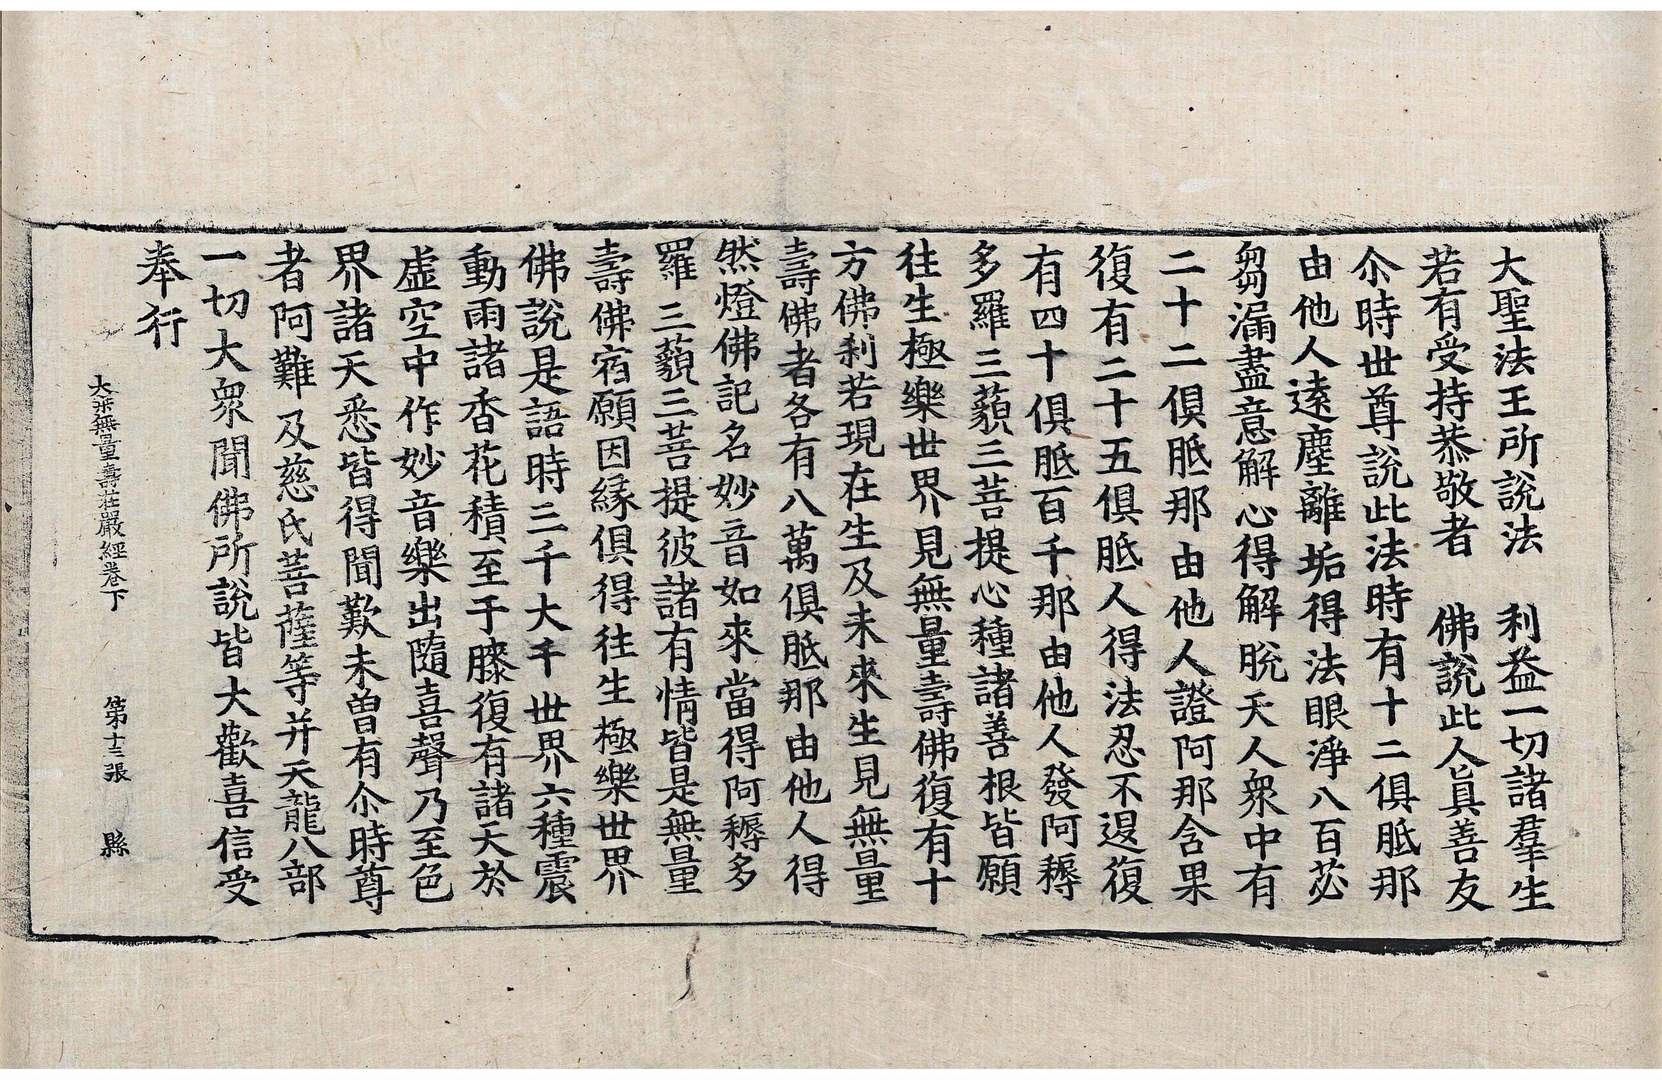 大聖法王所說法　利益一切諸羣生
若有受持恭敬者　佛說此人真善友
尒時世尊說此法時有十二俱胝那
由他人遠塵離垢得法眼淨八百苾
芻漏盡意解心得解脫天人衆中有
二十二俱胝那由他人證阿那含果
復有二十五俱胝人得法忍不退復
有四十俱胝百千那由他人發阿耨
多羅三藐三菩提心種諸善根皆願
往生極樂世界見無量壽佛復有十
方佛刹若現在生及未來生見無量
壽佛者各有八萬俱胝那由他人得
然燈佛記名妙音如來當得阿耨多
羅三藐三菩提彼諸有情皆是無量
壽佛宿願因緣俱得往生極樂世界
佛說是語時三千大千世界六種震
動雨諸香花積至于膝復有諸天於
虛空中作妙音樂出隨喜聲乃至色
界諸天悉皆得聞歎未曾有尒時尊
者阿難及慈氏菩薩等并天龍八部
一切大衆聞佛所說皆大歡喜信受
奉行
大乘無量壽莊嚴經卷下　第十三張　縣